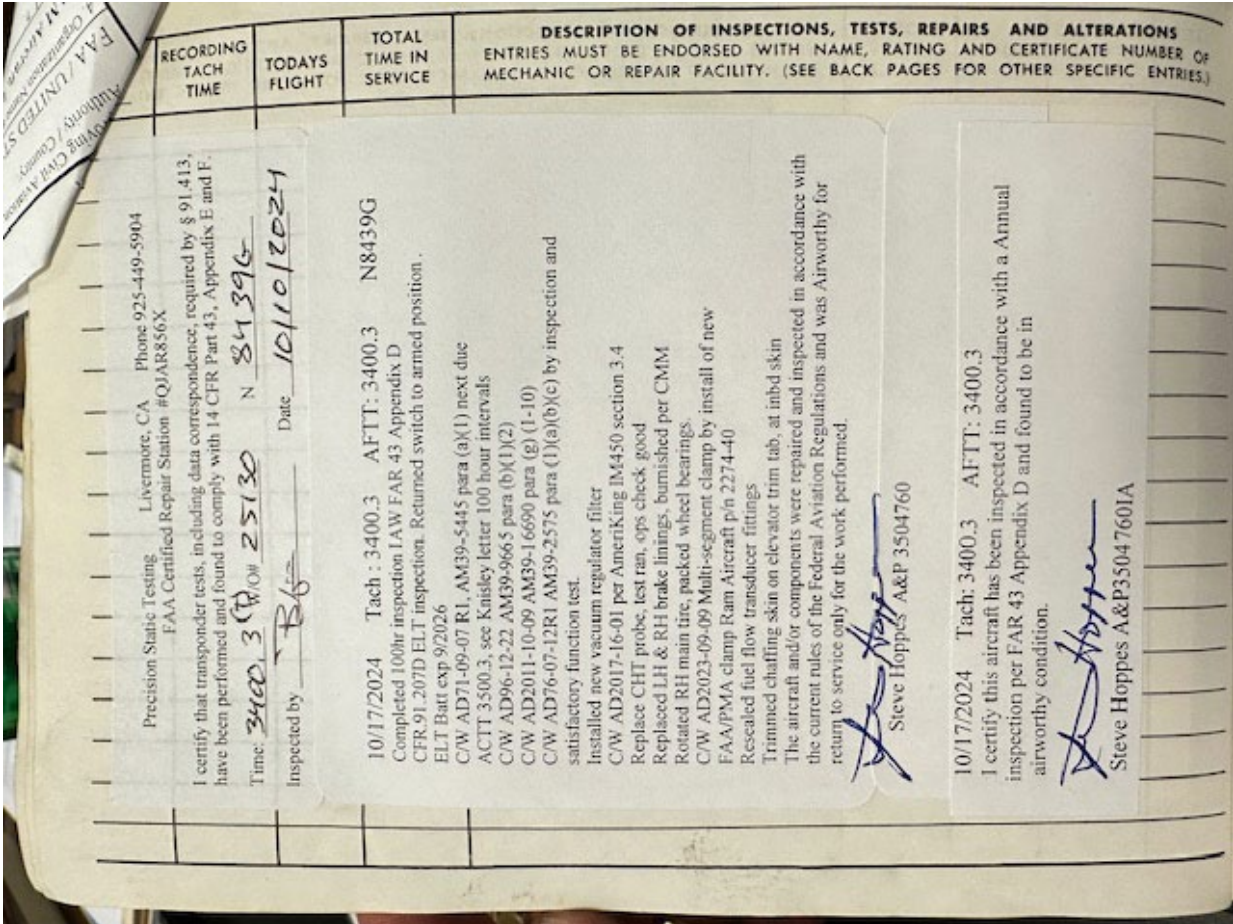 FAA / UNITED ST
4. Organization Name
RECORDING TACH TIME
TODAYS FLIGHT
TOTAL TIME IN SERVICE
DESCRIPTION OF INSPECTIONS, TESTS, REPAIRS AND ALTERATIONS
ENTRIES MUST BE ENDORSED WITH NAME, RATING AND CERTIFICATE NUMBER OF
MECHANIC OR REPAIR FACILITY. (SEE BACK PAGES FOR OTHER SPECIFIC ENTRIES.)
Precision Static Testing Livermore, CA Phone 925-449-5904
FAA Certified Repair Station #QJAR856X
I certify that transponder tests, including data correspondence, required by § 91.413,
have been performed and found to comply with 14 CFR Part 43, Appendix E and F.
Time: 3400.3 (T) WO# 25130 N 8439G
Inspected by Date 10/10/2024
10/17/2024 Tach : 3400.3 AFTT: 3400.3 N8439G
Completed 100hr inspection IAW FAR 43 Appendix D
CFR.91.207D ELT inspection. Returned switch to armed position .
ELT Batt exp 9/2026
C/W AD71-09-07 R1, AM39-5445 para (a)(1) next due
ACTT 3500.3, see Knisley letter 100 hour intervals
C/W AD96-12-22 AM39-9665 para (b)(1)(2)
C/W AD2011-10-09 AM39-16690 para (g) (1-10)
C/W AD76-07-12R1 AM39-2575 para (1)(a)(b)(c) by inspection and
satisfactory function test.
Installed new vacuum regulator filter
C/W AD2017-16-01 per AmeriKing IM450 section 3.4
Replace CHT probe, test ran, ops check good
Replaced LH & RH brake linings, burnished per CMM
Rotated RH main tire, packed wheel bearings.
C/W AD2023-09-09 Multi-segment clamp by install of new
FAA/PMA clamp Ram Aircraft p/n 2274-40
Resealed fuel flow transducer fittings
Trimmed chaffing skin on elevator trim tab, at inbd skin
The aircraft and/or components were repaired and inspected in accordance with
the current rules of the Federal Aviation Regulations and was Airworthy for
return to service only for the work performed.
Steve Hoppes A&P 3504760
10/17/2024 Tach: 3400.3 AFTT: 3400.3
I certify this aircraft has been inspected in accordance with a Annual
inspection per FAR 43 Appendix D and found to be in
airworthy condition.
Steve Hoppes A&P3504760IA